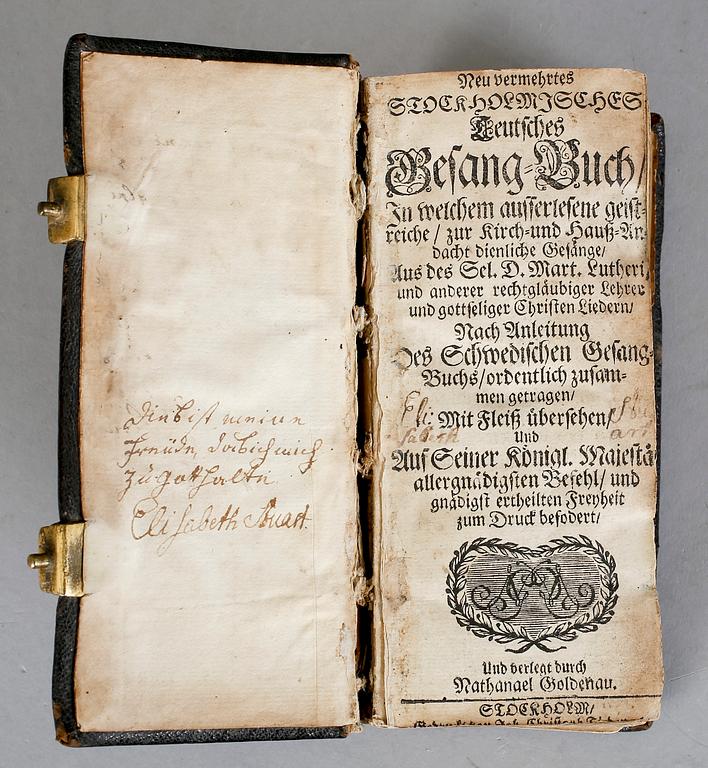 Dieß ist meine
freüde, daß ich mich
zu gott halte
Elisabeth Stuart
Neu vermehrtes
STOCKHOLMISCHES
Teutsches
Gesang-Buch/
In welchem ausserlesene geist-
reiche / zur Kirch-und Hauß-An-
dacht dienliche Gesänge/
Aus des Sel. D. Mart. Lutheri,
und anderer rechtgläubiger Lehrer
und gottseliger Christen Liedern/
Nach Anleitung
Des Schwedischen Gesang-
Buchs/ordentlich zusam-
men getragen/
Eli: Mit Fleiß übersehen/ Stu
sabeth Und art
Auf Seiner Königl. Majestä
allergnädigsten Befehl/ und
gnädigst ertheilten Freyheit
zum Druck befodert/
Und verlegt durch
Nathanael Goldenau.
STOCKHOLM/